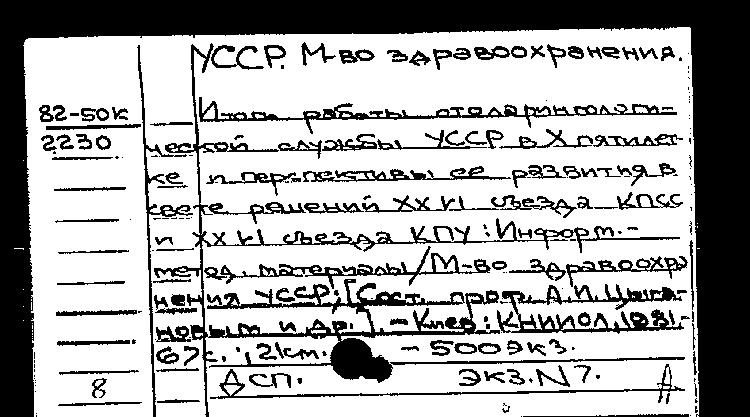 УССР. М-во здравоохранения.
82-50к
2230
Итоги работы отоларингологи-
ческой службы УССР в X пятилет-
ке и перспективы ее развития в
свете решений XXVI съезда КПСС
и XXVI съезда КПУ : Информ.-
метод. материалы / М-во здравоохра
нения УССР; [Сост. проф. А.И. Цыга-
новым и др.]. – Киев : КНИИОЛ, 1981.-
67с. ; 21 см. – 500 экз.
8 Дсп. экз. N 7.